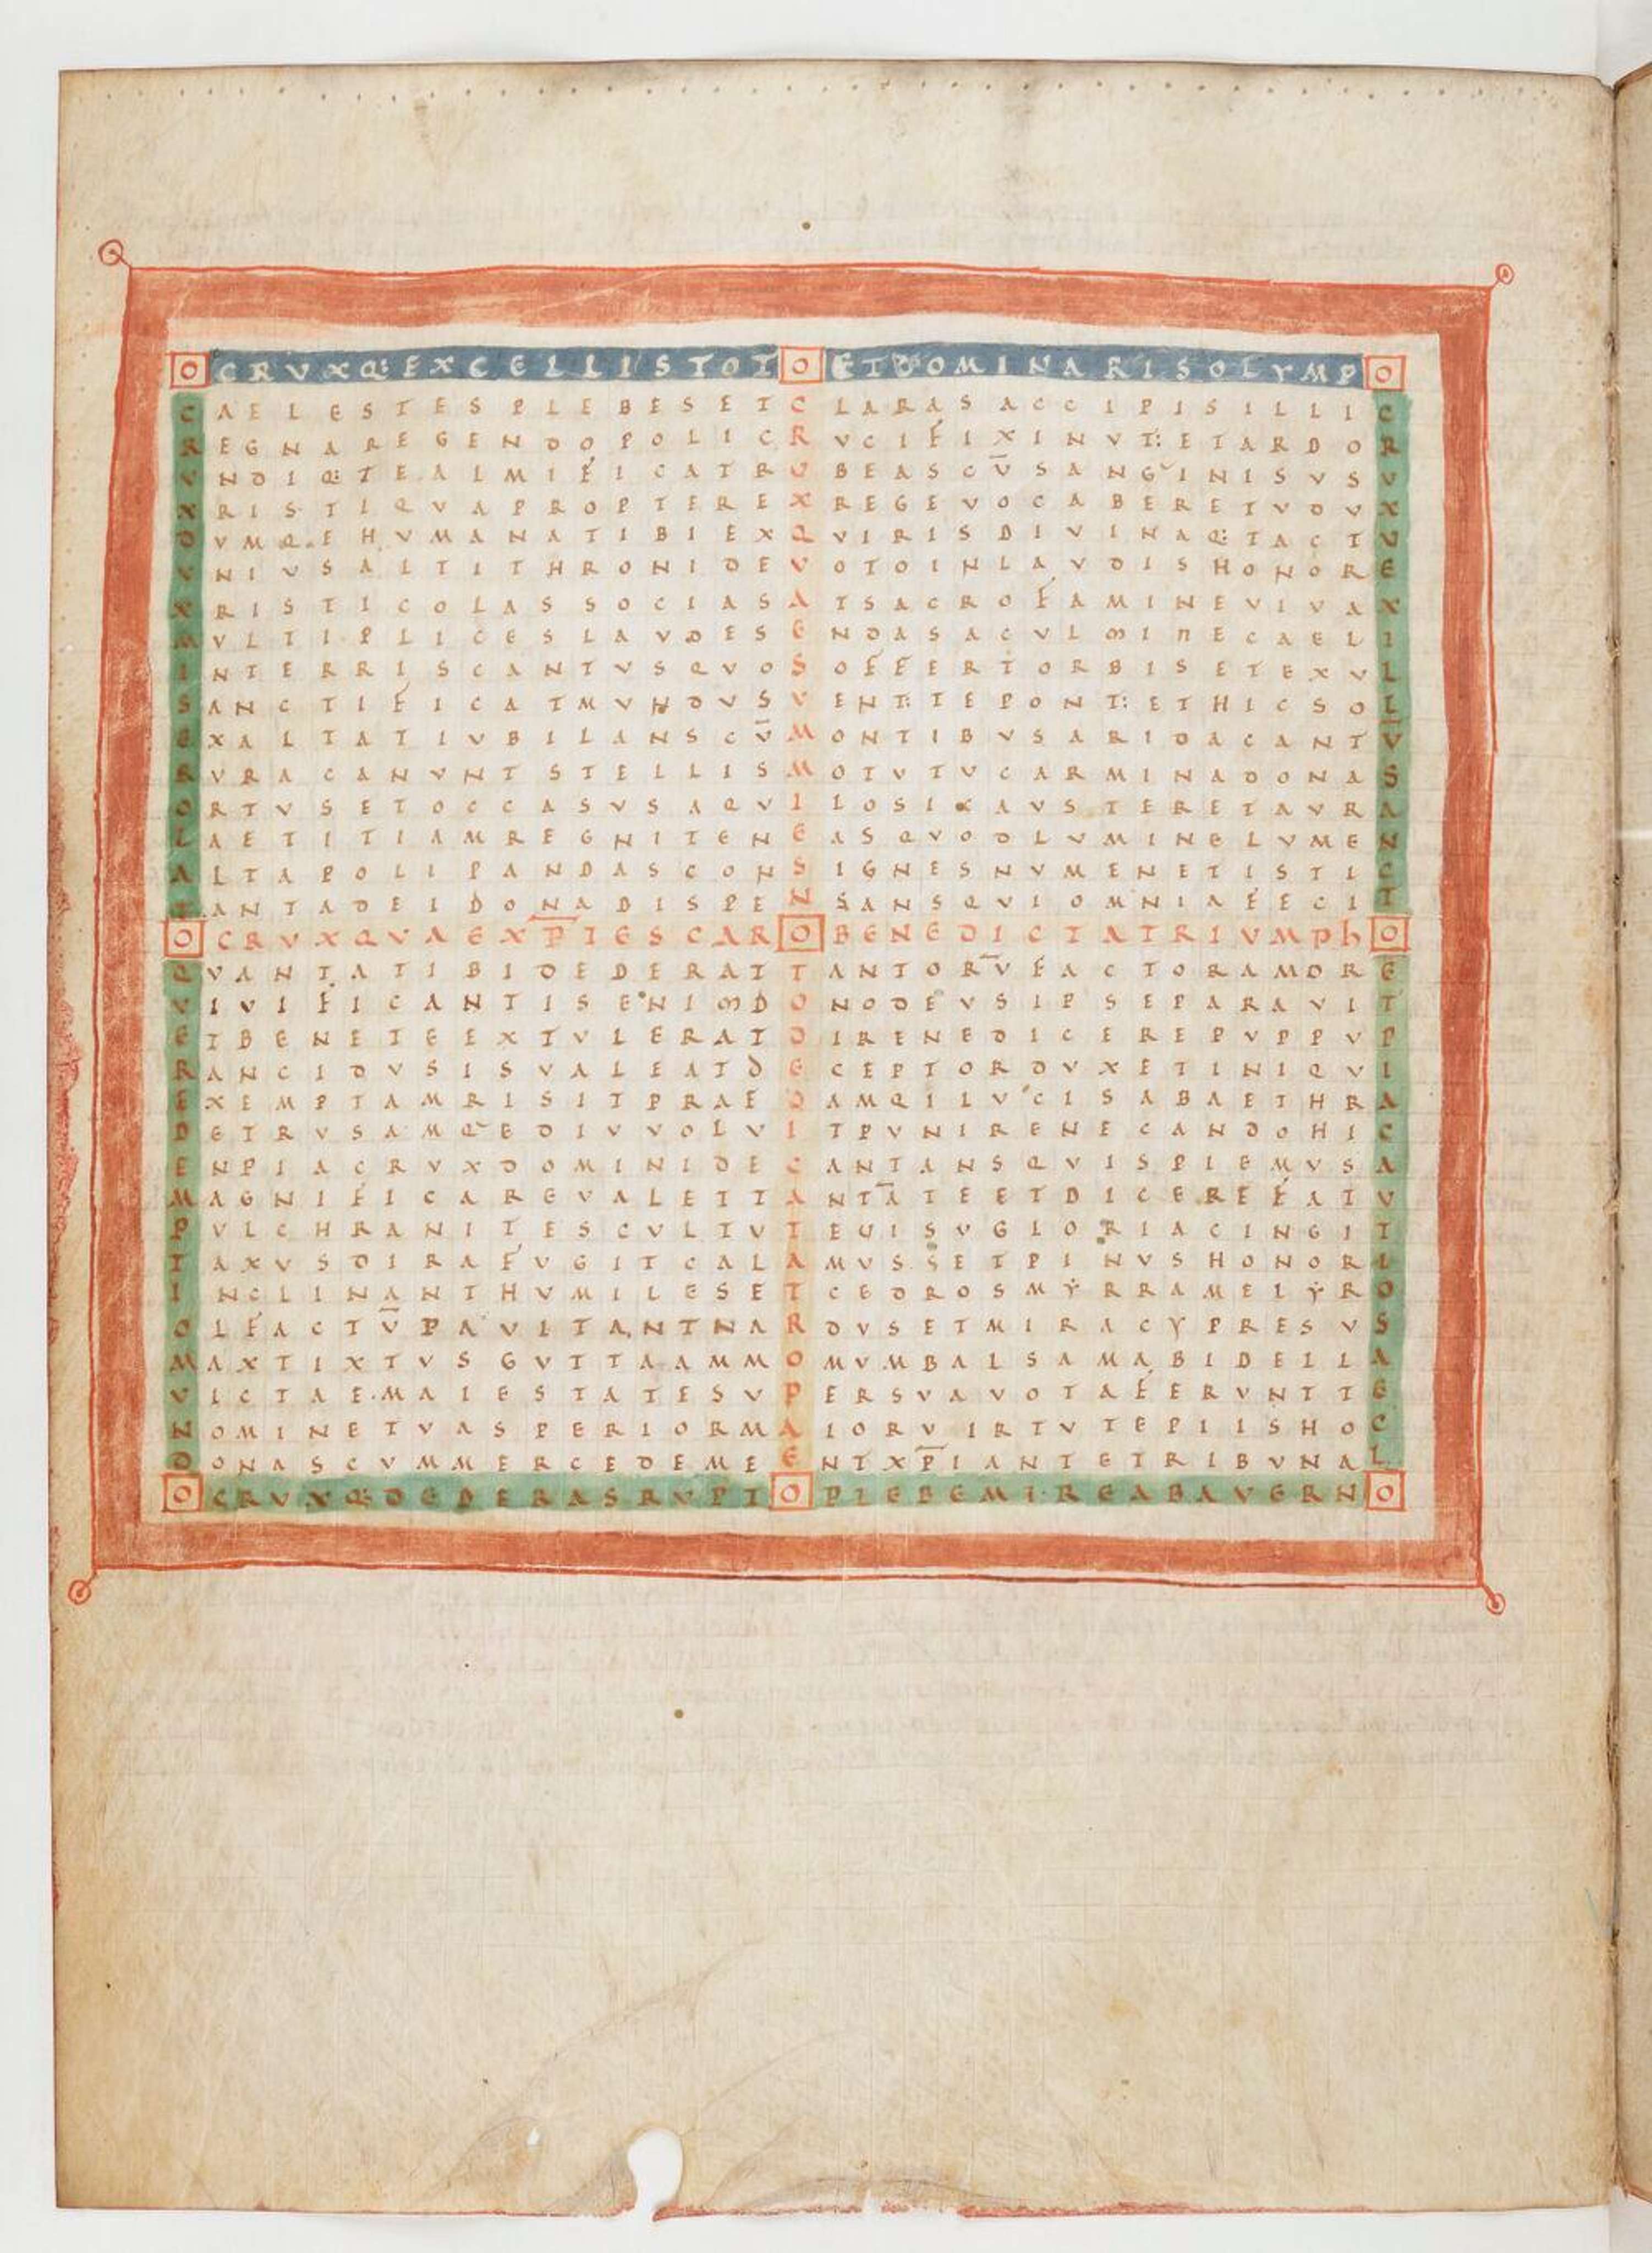 OCRVXQ:EXCELLISTOTOETDOMINARISOLYMPO
CAELESTESPLEBESETCLARASACCIPISILLIC
REGNAREGENDOPOLICRVCIFIXINVT:ETARBOR
VNDIQ:TEALMIFICATRVBEASCV̄SANGVINISVSV
XRISTIQVAPROPTEREXREGEVOCABERETVDVX
DVMQ.EHVMANATIBIEXQVIRISDIVINAQ:TACTV
VNIVSALTITHRONIDEVOTOINLAVDISHONORE
XRISTICOLASSOCIASATSACROFAMINEVIVAX
MVLTIPLICESLAVDESENDASACVLMINECAELI
INTERRISCANTVSQVOSOFFERTORBISETEXVL
SANCTIFICATMVNDVSVENT:TEPONT:ETHICSOL
EXALTATIVBILANSCV̄MONTIBVSARIDACANTV̄
RVRACANVNTSTELLISMOTVTVCARMINADONAS
ORTVSETOCCASVSAQVILOSIXAVSTERETAVRA
LAETITIAMREGNITENEASQVODLVMINELVMEN
ALTAPOLIPANDASCONSIGNESNVMENETISTIC
TANTADEIDONADISPENSANSQVIOMNIAFECIT
OCRVXQVAEXP̄IESCAROBENEDICTATRIVMPhO
QVANTATIBIDEDERATTANTORV̄FACTORAMORE
VIVIFICANTISENIMDONODEVSIPSEPARAVIT
ETBENETEEXTVLERATDIRENEDICEREPVPPVP
RANCIDVSISVALEATDECEPTORDVXETINIQVI
EXEMPTAMRISITPRAEDAMQILVCISABAETHRA
DETRVSAMQEDIVVOLVITPVNIRENECANDOHIC
ENPIACRVXDOMINIDECANTANSQVISPIEMVSA
MAGNIFICAREVALETTANTĀTEETDICEREFATV
PVLCHRANITESCVLTVTEQISVGLORIACINGIT
TAXVSDIRAFVGITCALAMVSSETPINVSHONORI
INCLINANTHVMILESETCEDROSMẎRRAMELẎRO
OLFACTV̄PAVITANTNARDVSETMIRACYPRESVS
MAXTIXTVSGVTTAAMMOMVMBALSAMABIDELLA
VICTAEMAIESTATESVPERSVAVOTAFERVNTTE
NOMINETVASPERIORMAIORVIRTVTEPIISHOC
DONASCVMMERCEDEMEENTXP̄IANTETRIBVNAL
OCRVXQ:DEDERASRVPTOPLEBEMIREABAVERNO